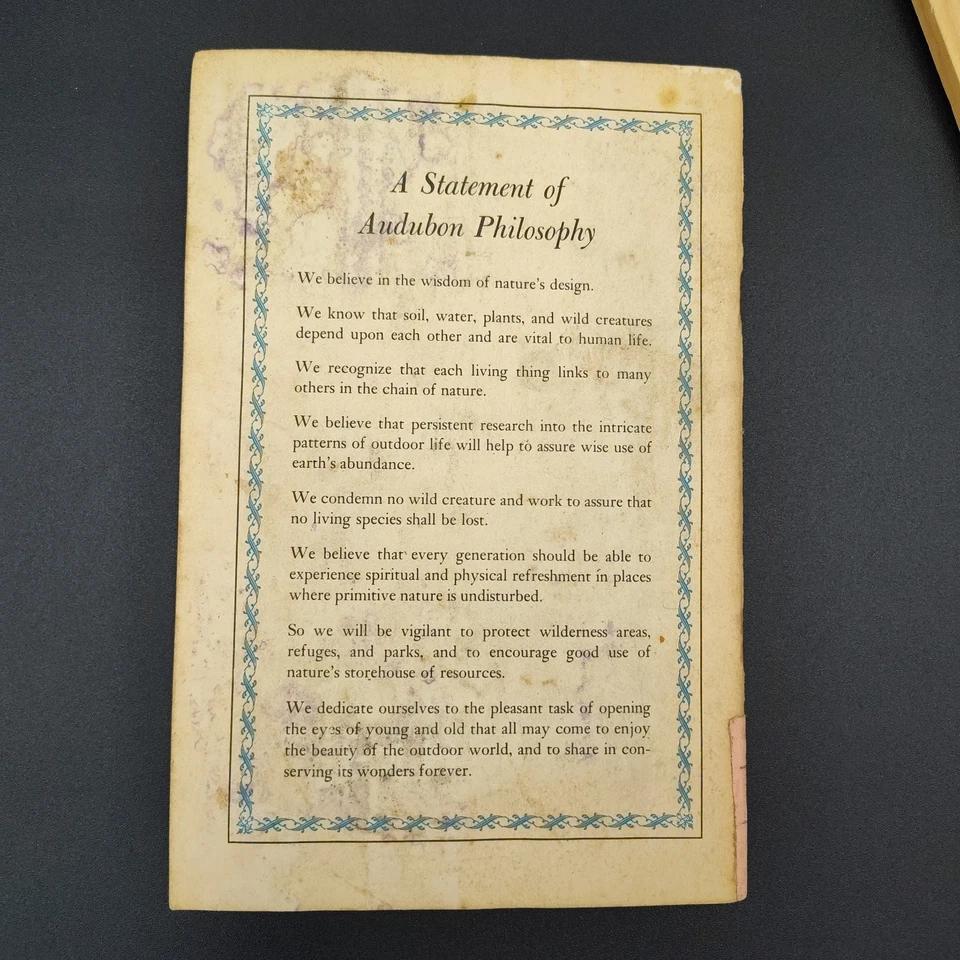 A Statement of
Audubon Philosophy
We believe in the wisdom of nature's design.
We know that soil, water, plants, and wild creatures
depend upon each other and are vital to human life.
We recognize that each living thing links to many
others in the chain of nature.
We believe that persistent research into the intricate
patterns of outdoor life will help to assure wise use of
earth's abundance.
We condemn no wild creature and work to assure that
no living species shall be lost.
We believe that every generation should be able to
experience spiritual and physical refreshment in places
where primitive nature is undisturbed.
So we will be vigilant to protect wilderness areas,
refuges, and parks, and to encourage good use of
nature's storehouse of resources.
We dedicate ourselves to the pleasant task of opening
the eyes of young and old that all may come to enjoy
the beauty of the outdoor world, and to share in con-
serving its wonders forever.